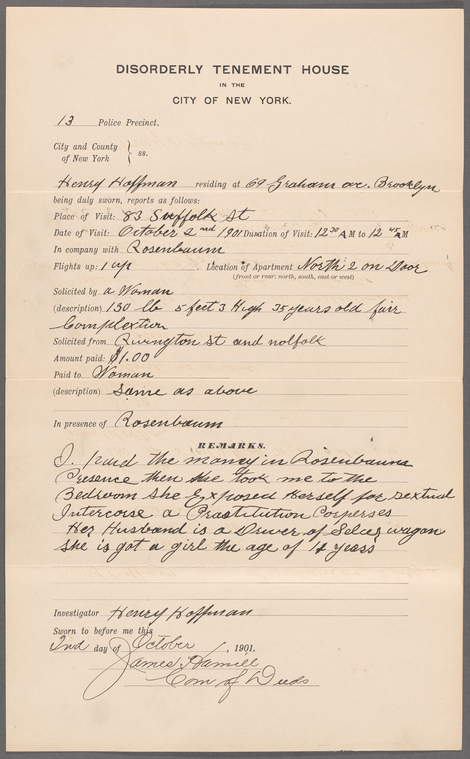 DISORDERLY TENEMENT HOUSE
IN THE
CITY OF NEW YORK.
13 Police Precinct.
City and County
of New York } ss.
Henry Hoffman residing at 69 Graham av. Brooklyn
being duly sworn, reports as follows:
Place of Visit: 83 Suffolk St
Date of Visit: October 2nd 1901 Duration of Visit: 12 30 AM to 12 45 AM
In company with Rosenbaum
Flights up: 1 up Location of Apartment North 2 on Door
(front or rear: north, south, east or west)
Solicited by a Woman
(description) 130 lb 5 feet 3 High 35 years old fair
Complextion
Solicited from Rivington St and nolfolk
Amount paid: $1.00
Paid to Woman
(description) Same as above
In presence of Rosenbaum
REMARKS.
I. paid the money in Rosenbaums
Presence then she took me to the
Bedroom she Exposed Herself for sextual
Intercorse a Prastitution Porperses
Her Husband is a Driver of wagon
she is got a girl the age of years
Investigator Henry Hoffman
Sworn to before me this
2nd day of October , 1901.
James Hamill
Com of Deeds